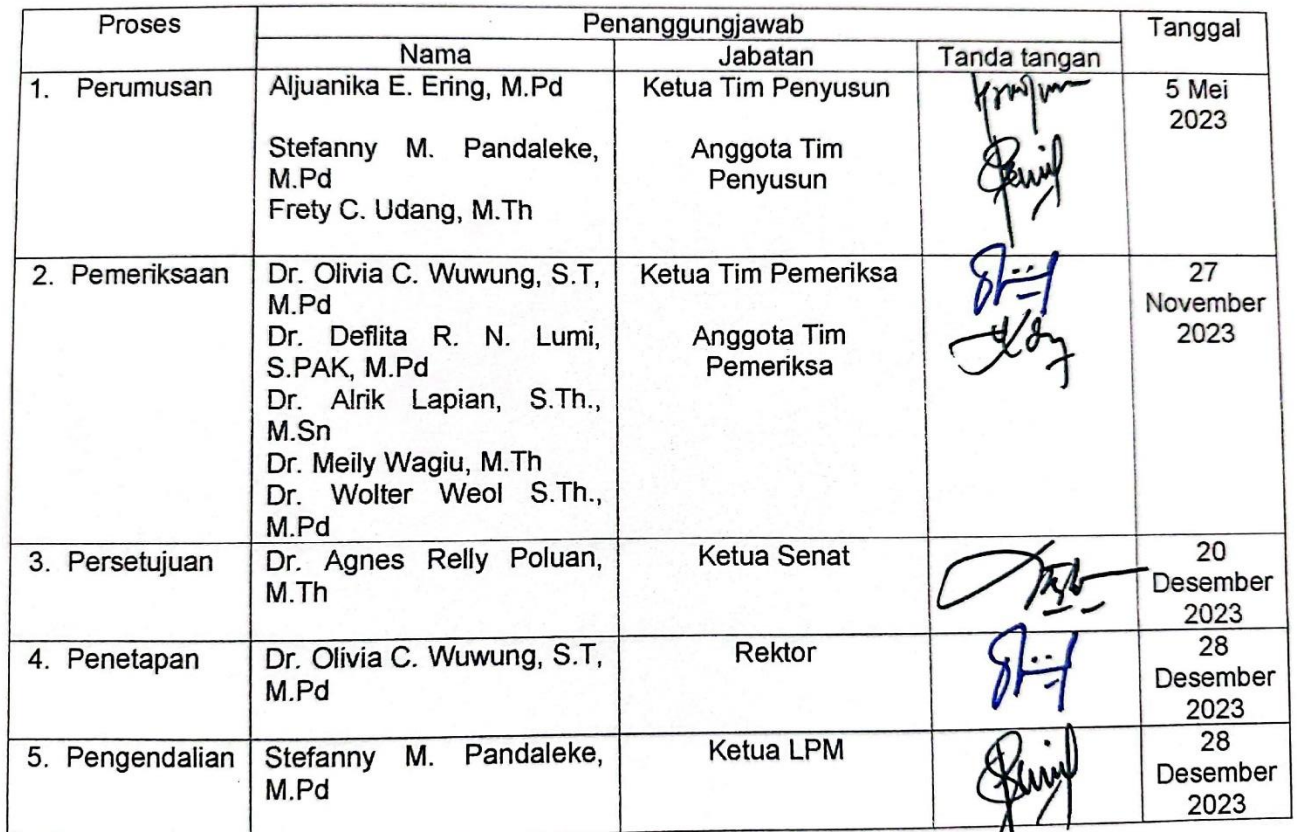 Proses
Penanggungjawab
Tanggal
Nama
Jabatan
Tanda tangan
1. Perumusan
Aljuanika E. Ering, M.Pd
Ketua Tim Penyusun
5 Mei
2023
Stefanny M. Pandaleke,
M.Pd
Frety C. Udang, M.Th
Anggota Tim
Penyusun
2. Pemeriksaan
Dr. Olivia C. Wuwung, S.T,
M.Pd
Dr. Deflita R. N. Lumi,
S.PAK, M.Pd
Dr. Alrik Lapian, S.Th.,
M.Sn
Dr. Meily Wagiu, M.Th
Dr. Wolter Weol S.Th.,
M.Pd
Ketua Tim Pemeriksa
Anggota Tim
Pemeriksa
27
November
2023
3. Persetujuan
Dr. Agnes Relly Poluan,
M.Th
Ketua Senat
20
Desember
2023
4. Penetapan
Dr. Olivia C. Wuwung, S.T,
M.Pd
Rektor
28
Desember
2023
5. Pengendalian
Stefanny M. Pandaleke,
M.Pd
Ketua LPM
28
Desember
2023